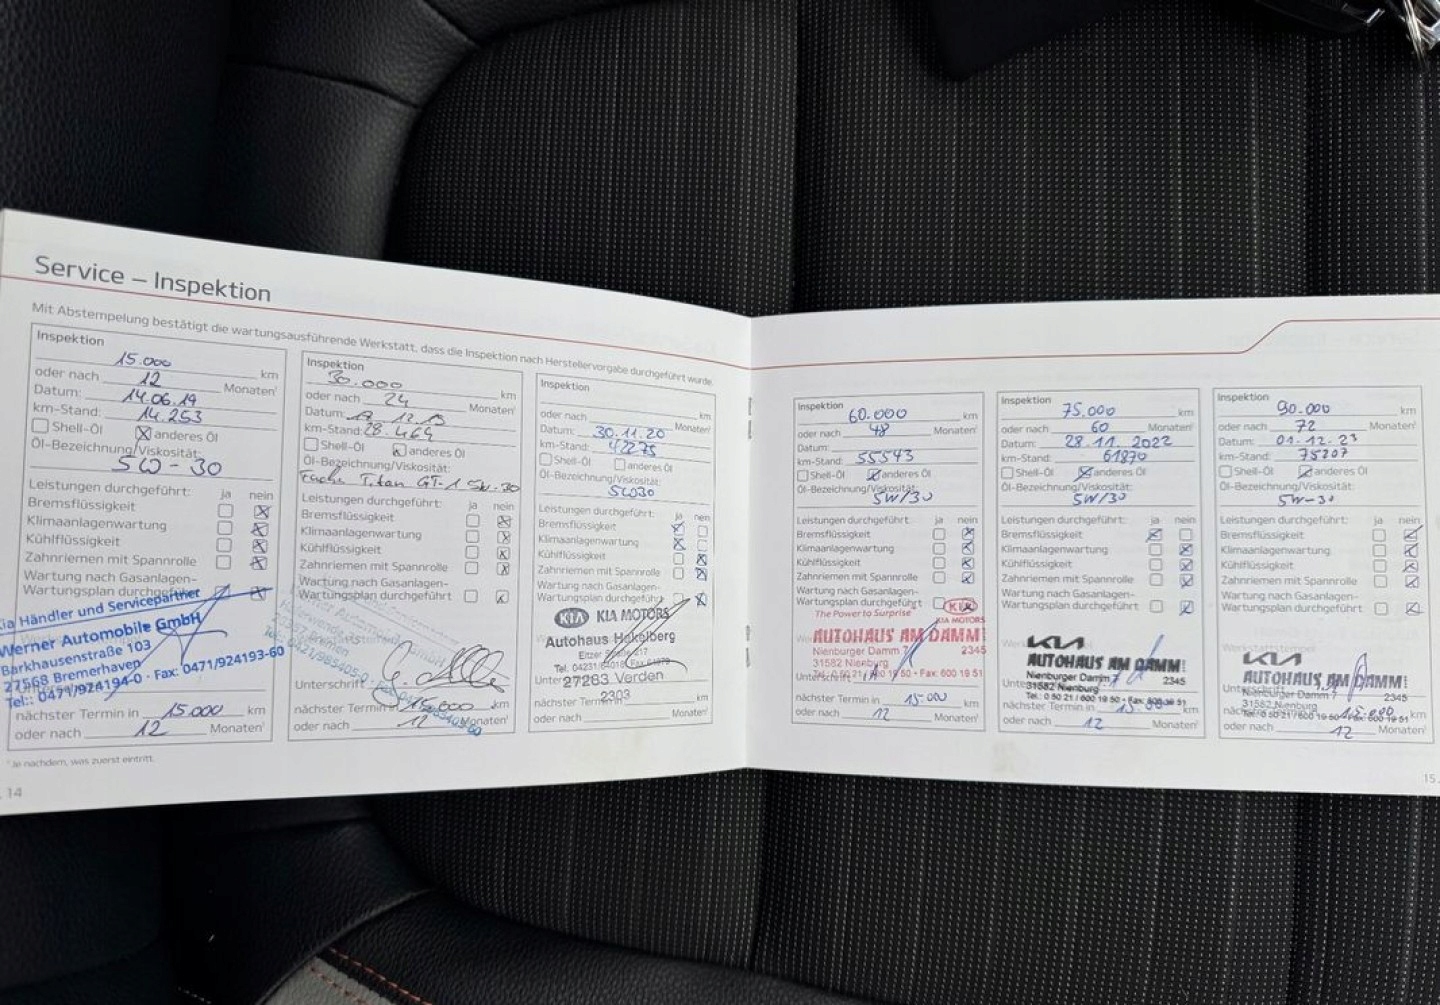 Service – Inspektion
Mit Abstempelung bestätigt die wartungsausführende Werkstatt, dass die Inspektion nach Herstellervorgabe durchgeführt wurde.
Inspektion
15.000 km
oder nach 12 Monaten¹
Datum: 14.06.19
km-Stand: 14.253
Shell-Öl anderes Öl
Öl-Bezeichnung/Viskosität:
5W-30
Leistungen durchgeführt: ja nein
Bremsflüssigkeit
Klimaanlagenwartung
Kühlflüssigkeit
Zahnriemen mit Spannrolle
Wartung nach Gasanlagen-
Wartungsplan durchgeführt
Kia Händler und Servicepartner
Werner Automobile GmbH
Barkhausenstraße 103
27568 Bremerhaven
Tel.: 0471/924194-0 · Fax: 0471/924193-60
nächster Termin in 15.000 km
oder nach 12 Monaten¹
Inspektion
30.000 km
oder nach 24 Monaten¹
Datum 12.19
km-Stand: 28.464
Shell-Öl anderes Öl
Öl-Bezeichnung/Viskosität:
Fuchs Titan GT-1 5W-30
Leistungen durchgeführt: ja nein
Bremsflüssigkeit
Klimaanlagenwartung
Kühlflüssigkeit
Zahnriemen mit Spannrolle
Wartung nach Gasanlagen-
Wartungsplan durchgeführt
Unterschrift
nächster Termin 15.000 km
oder nach 12 Monaten¹
Inspektion
km
oder nach Monaten¹
Datum: 30.11.20
km-Stand: 42275
Shell-Öl anderes Öl
Öl-Bezeichnung/Viskosität:
5W30
Leistungen durchgeführt: ja nein
Bremsflüssigkeit
Klimaanlagenwartung
Kühlflüssigkeit
Zahnriemen mit Spannrolle
Wartung nach Gasanlagen-
Wartungsplan durchgeführt
KIA KIA MOTORS
Autohaus Hakelberg
Eitzer Straße 217
27283 Verden
2303
nächster Termin in km
oder nach Monaten¹
¹ Je nachdem, was zuerst eintritt.
14
Inspektion
60.000 km
oder nach 48 Monaten¹
Datum:
km-Stand: 55543
Shell-Öl anderes Öl
Öl-Bezeichnung/Viskosität:
5W/30
Leistungen durchgeführt: ja nein
Bremsflüssigkeit
Klimaanlagenwartung
Kühlflüssigkeit
Zahnriemen mit Spannrolle
Wartung nach Gasanlagen-
Wartungsplan durchgeführt
KIA
The Power to Surprise KIA MOTORS
AUTOHAUS AM DAMM!
Nienburger Damm 7 2345
31582 Nienburg
600 19 50 · Fax: 600 19 51
nächster Termin in 15.000 km
oder nach 12 Monaten¹
Inspektion
75.000 km
oder nach 60 Monaten¹
Datum: 28.11.2022
km-Stand: 61870
Shell-Öl anderes Öl
Öl-Bezeichnung/Viskosität:
5W/30
Leistungen durchgeführt: ja nein
Bremsflüssigkeit
Klimaanlagenwartung
Kühlflüssigkeit
Zahnriemen mit Spannrolle
Wartung nach Gasanlagen-
Wartungsplan durchgeführt
KIA
AUTOHAUS AM DAMM!
Nienburger Damm 7 2345
31582 Nienburg
Tel.: 0 50 21 / 600 19 50 · Fax: 600 19 51
nächster Termin in 15.000 km
oder nach 12 Monaten¹
Inspektion
90.000 km
oder nach 72 Monaten¹
Datum: 01.12.23
km-Stand: 75207
Shell-Öl anderes Öl
Öl-Bezeichnung/Viskosität:
5W-30
Leistungen durchgeführt: ja nein
Bremsflüssigkeit
Klimaanlagenwartung
Kühlflüssigkeit
Zahnriemen mit Spannrolle
Wartung nach Gasanlagen-
Wartungsplan durchgeführt
Werkstattstempel
KIA
AUTOHAUS AM DAMM!
Nienburger Damm 7 2345
31582 Nienburg
Tel.: 0 50 21 / 600 19 50 · Fax: 600 19 51
15.000 km
oder nach 12 Monaten¹
15